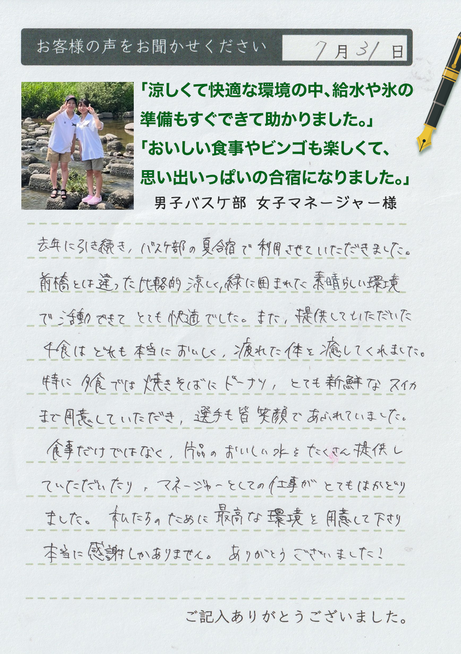 お客様の声をお聞かせください 7月31日
「涼しくて快適な環境の中、給水や氷の
準備もすぐできて助かりました。」
「おいしい食事やビンゴも楽しくて、
思い出いっぱいの合宿になりました。」
男子バスケ部 女子マネージャー様
去年に引き続き、バスケ部の夏合宿で利用させていただきました。
前橋とは違った比較的涼しく、緑に囲まれた素晴らしい環境
で活動できてとても快適でした。また、提供していただいた
食はどれも本当においしく、疲れた体を癒してくれました。
特に夕食では焼きそばにドーナツ、とても新鮮なスイカ
まで用意していただき、選手も皆笑顔であふれていました。
食事だけではなく、片品のおいしい水をたくさん提供し
ていただいたり、マネージャーとしての仕事がとてもはかどり
ました。私たちのために最高な環境を用意して下さり
本当に感謝しかありません。ありがとうございました!
ご記入ありがとうございました。